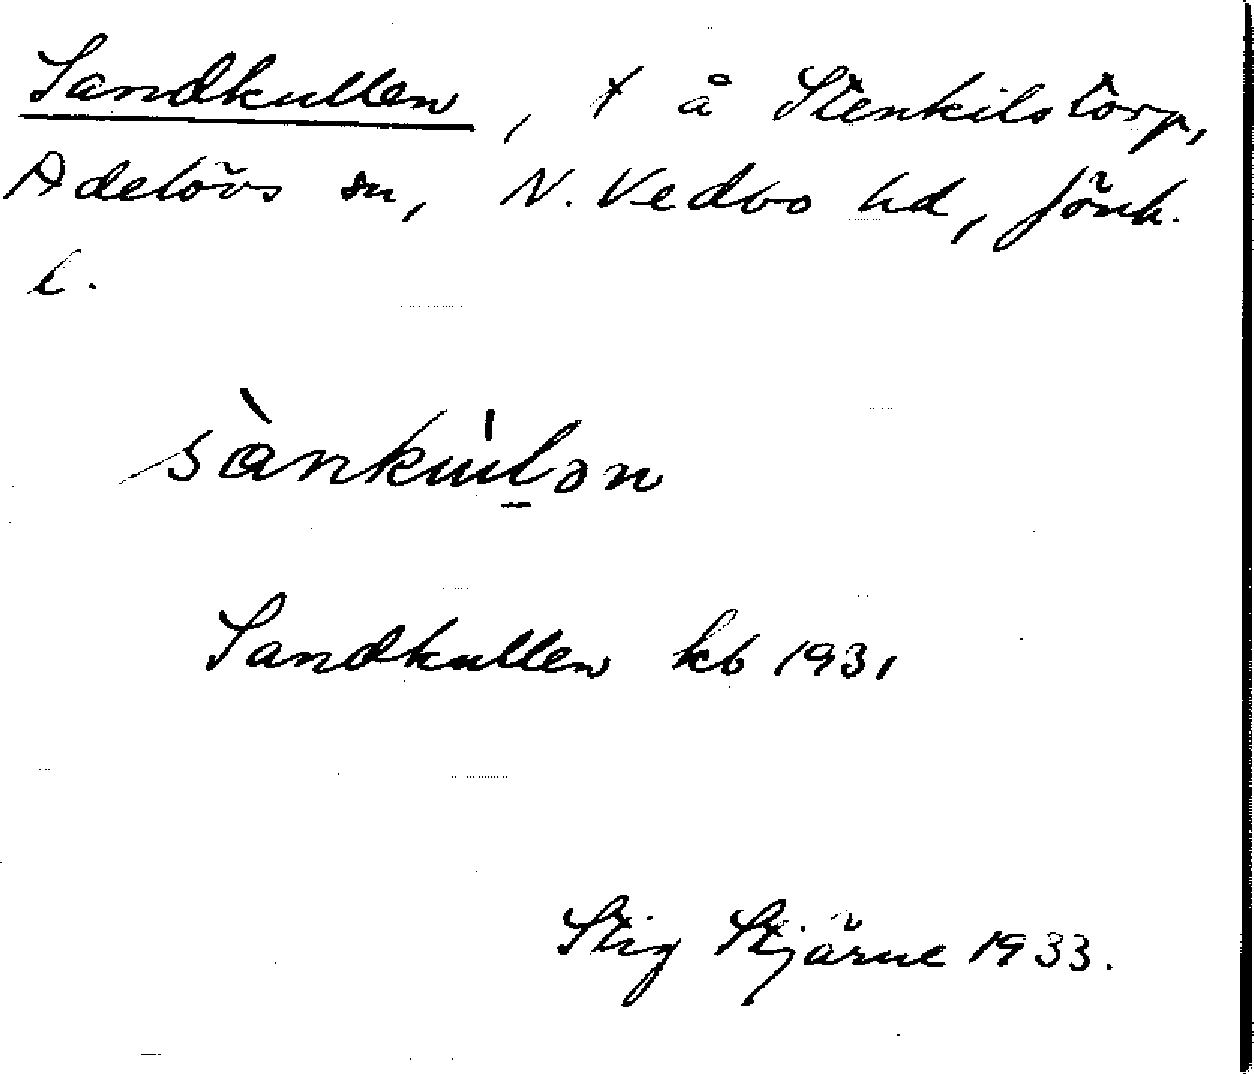 Sandkullen, t å Stenkilstorp,
Adelövs sn, N. Vedbo hd, Jönk.
l.
sànku̍l̠ən
Sandkullen kb 1931
Stig Stjärne 1933.